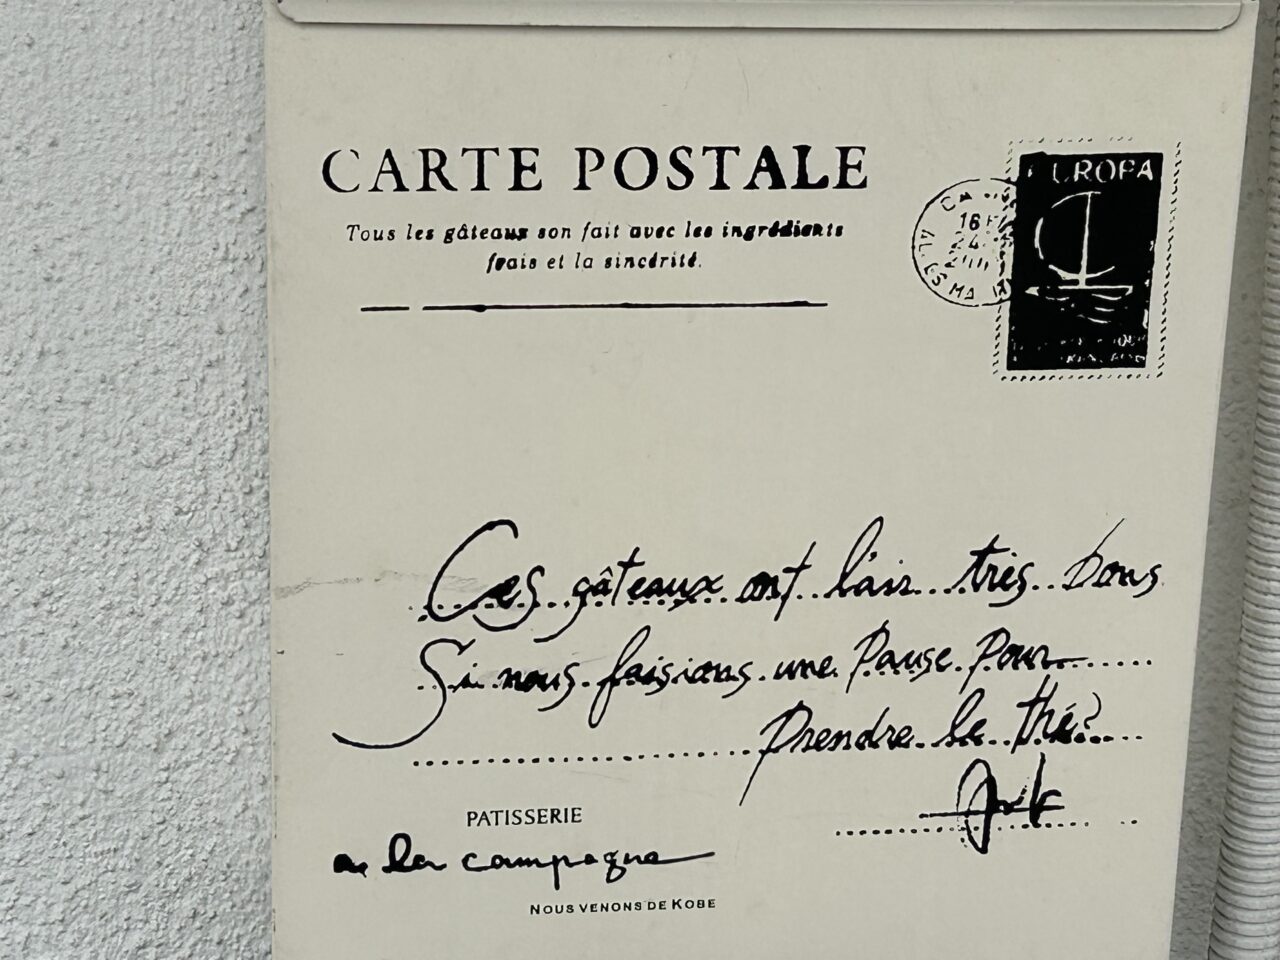 CARTE POSTALE
Tous les gâteaux son fait avec les ingrédients
frais et la sincérité.
EUROPA
16
24
Ces gâteaux ont l'air très bons
Si nous faisions une Pause Pour
Prendre le thé?
PATISSERIE
a la campagne
NOUS VENONS DE KOBE